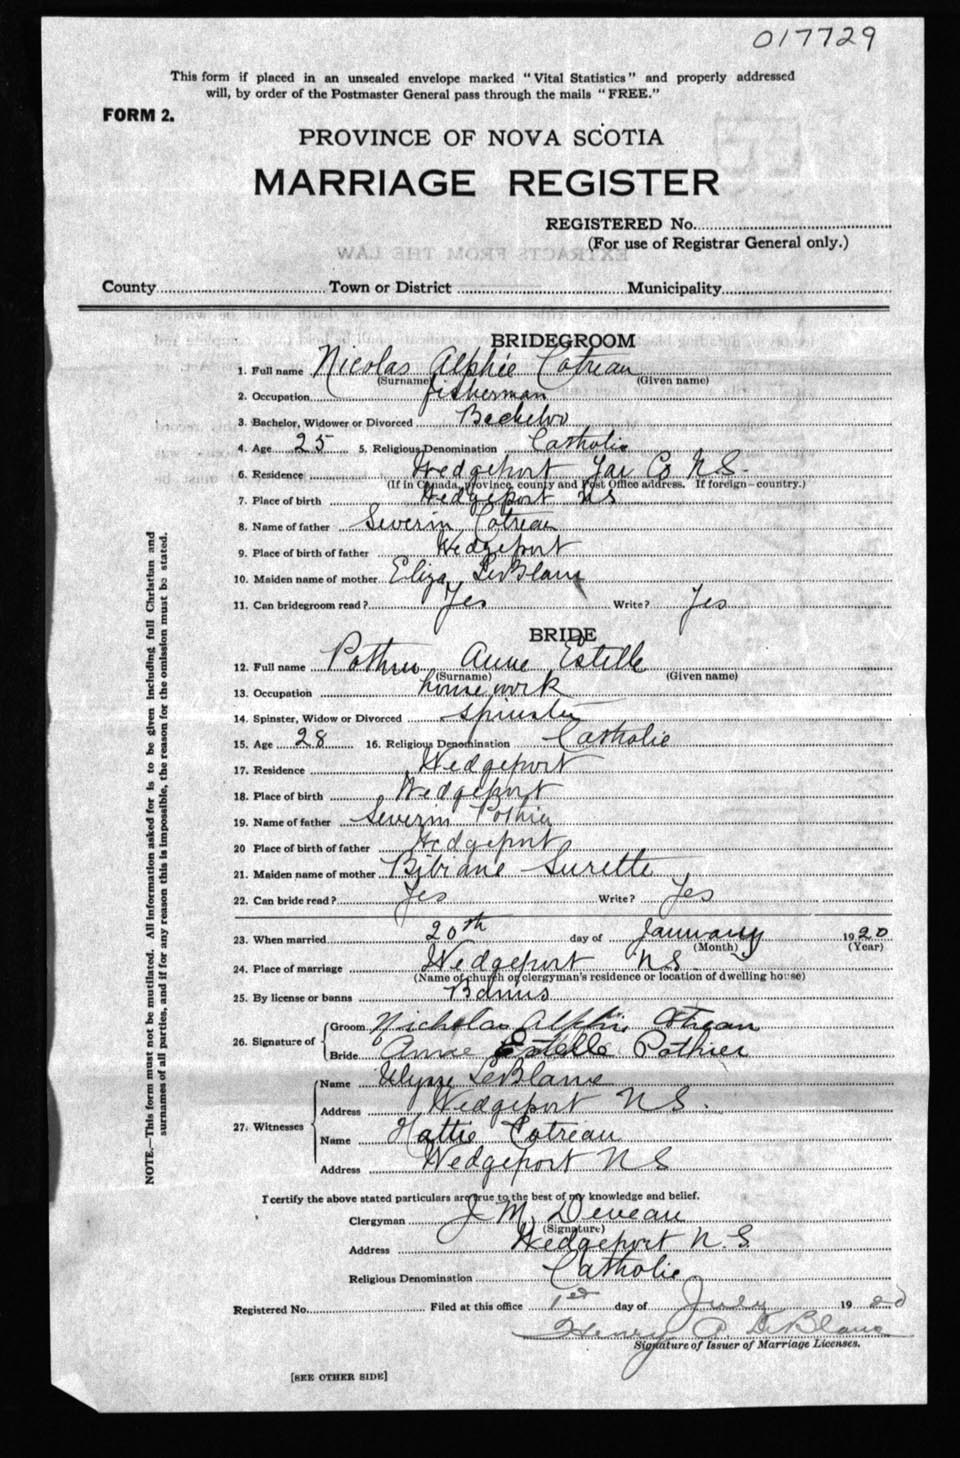 017729
This form if placed in an unsealed envelope marked "Vital Statistics" and properly addressed
will, by order of the Postmaster General pass through the mails "FREE."
FORM 2.
PROVINCE OF NOVA SCOTIA
MARRIAGE REGISTER
REGISTERED No.
(For use of Registrar General only.)
EXTRACTS FROM THE LAW
County Town or District Municipality
BRIDEGROOM
1. Full name Nicolas Alphée Cotreau
(Surname) (Given name)
2. Occupation fisherman
3. Bachelor, Widower or Divorced Bachelor
4. Age 25 5. Religious Denomination Catholic
6. Residence Wedgeport Yar Co N.S.
(If in Canada, province, county and Post Office address. If foreign—country.)
7. Place of birth Wedgeport NS
8. Name of father Severin Cotreau
9. Place of birth of father Wedgeport
10. Maiden name of mother Eliza LeBlanc
11. Can bridegroom read? Yes Write? Yes
BRIDE
12. Full name Pothier Anne Estelle
(Surname) (Given name)
13. Occupation house work
14. Spinster, Widow or Divorced spinster
15. Age 28 16. Religious Denomination Catholic
17. Residence Wedgeport
18. Place of birth Wedgeport
19. Name of father Severin Pothier
20 Place of birth of father Wedgeport
21. Maiden name of mother Bibiane Surette
22. Can bride read? Yes Write? Yes
23. When married 20th day of January 1920
(Month) (Year)
24. Place of marriage Wedgeport NS
(Name of church or clergyman's residence or location of dwelling house)
25. By license or banns Banns
26. Signature of Groom Nicholas Alphie Cotreau
Bride Anne Estelle Pothier
27. Witnesses Name Ulysse LeBlanc
Address Wedgeport N.S.
Name Hattie Cotreau
Address Wedgeport NS
I certify the above stated particulars are true to the best of my knowledge and belief.
Clergyman J M Deveau
(Signature)
Address Wedgeport N.S.
Religious Denomination Catholic
Registered No. Filed at this office 1st day of July 1920
Henry P. LeBlanc
Signature of Issuer of Marriage Licenses.
[SEE OTHER SIDE]
NOTE.—This form must not be mutilated. All information asked for is to be given including full Christian and
surnames of all parties, and if for any reason this is impossible, the reason for the omission must be stated.